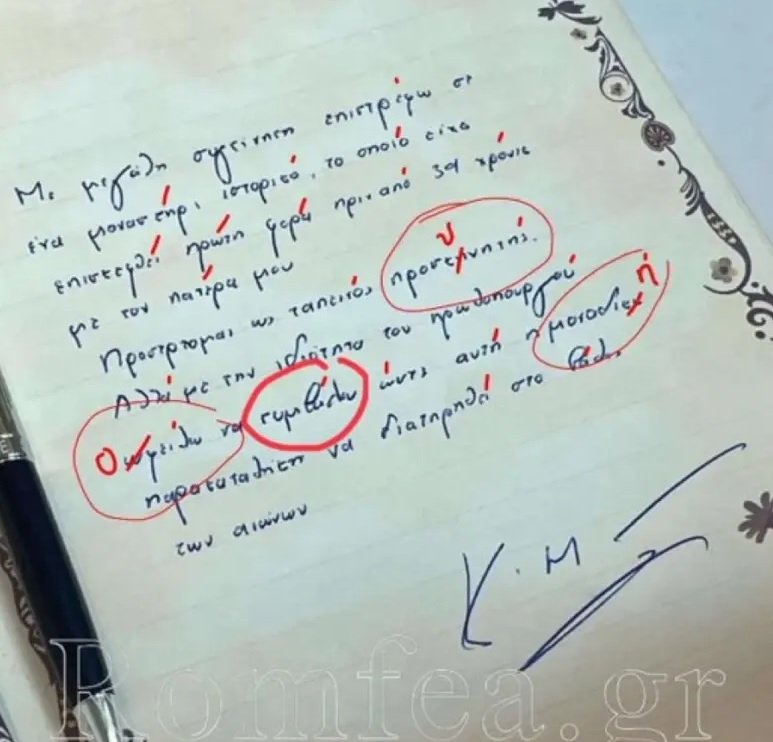 Με μεγάλη συγκίνηση επιστρέφω σε
ένα μοναστήρι ιστορικό, το οποίο είχα
επισκεφθεί πρώτη φορά πριν από 39 χρόνια
με τον πατέρα μου
Προσέρχομαι ως ταπεινός προσκηνητής.
υ
Αλλά με την ιδιότητα του πρωθυπουργού
ή
Ο ωφείλω να συμβάλω ώστε αυτή η μοναδική
παρακαταθήκη να διατηρηθεί στο βάθος
των αιώνων
Κ. Μ
Romfea.gr